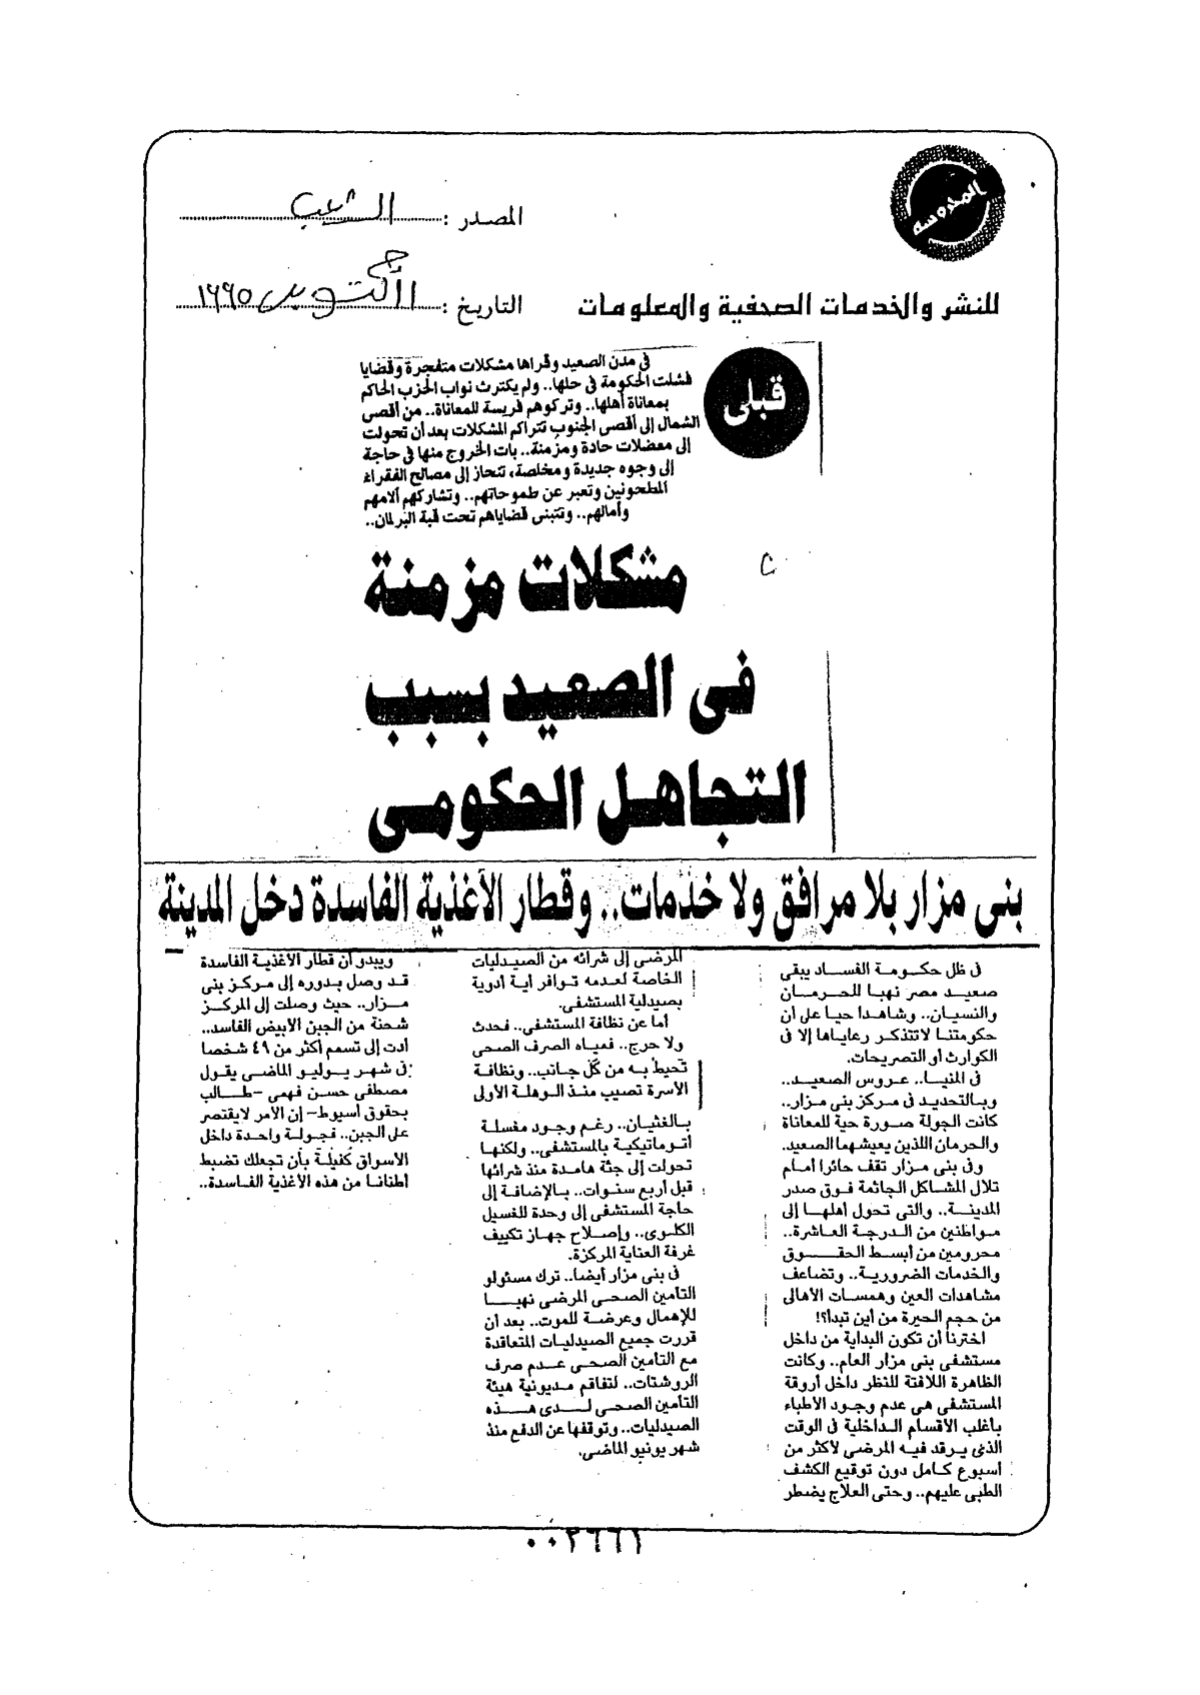 المحروسة
المصدر : الشعب
للنشر والخدمات الصحفية والمعلومات
التاريخ : أكتوبر ١٩٩٥
قبلى
فى مدن الصعيد وقراها مشكلات متفجرة وقضايا
فشلت الحكومة فى حلها.. ولم يكترث نواب الحزب الحاكم
بمعاناة أهلها.. وتركوهم فريسة للمعاناة.. من أقصى
الشمال إلى أقصى الجنوب تتراكم المشكلات بعد أن تحولت
إلى معضلات حادة ومزمنة.. بات الخروج منها فى حاجة
إلى وجوه جديدة ومخلصة، تنحاز إلى مصالح الفقراء
المطحونين وتعبر عن طموحاتهم.. وتشاركهم آلامهم
وآمالهم.. وتتبنى قضاياهم تحت قبة البرلمان..
مشكلات مزمنة
فى الصعيد بسبب
التجاهل الحكومى
بنى مزار بلا مرافق ولا خدمات.. وقطار الأغذية الفاسدة دخل المدينة
فى ظل حكومة الفساد يبقى
صعيد مصر نهبا للحرمان
والنسيان.. وشاهدا حيا على أن
حكومتنا لاتتذكر رعاياها إلا فى
الكوارث أو التصريحات.
فى المنيا.. عروس الصعيد..
وبالتحديد فى مركز بنى مزار..
كانت الجولة صورة حية للمعاناة
والحرمان اللذين يعيشهما الصعيد.
وفى بنى مزار تقف حائرا أمام
تلال المشاكل الجاثمة فوق صدر
المدينة.. والتى تحول أهلها إلى
مواطنين من الدرجة العاشرة..
محرومين من أبسط الحقوق
والخدمات الضرورية.. وتضاعف
مشاهدات العين وهمسات الأهالى
من حجم الحيرة من أين تبدأ؟!
اخترنا أن تكون البداية من داخل
مستشفى بنى مزار العام.. وكانت
الظاهرة اللافتة للنظر داخل أروقة
المستشفى هى عدم وجود الأطباء
بأغلب الأقسام الداخلية فى الوقت
الذى يرقد فيه المرضى لأكثر من
أسبوع كامل دون توقيع الكشف
الطبى عليهم.. وحتى العلاج يضطر
المرضى إلى شرائه من الصيدليات
الخاصة لعدمه توافر أية أدوية
بصيدلية المستشفى.
أما عن نظافة المستشفى.. فحدث
ولا حرج.. فمياه الصرف الصحى
تحيط به من كل جانب.. ونظافة
الأسرة تصيب منذ الوهلة الأولى
بالغثيان.. رغم وجود مغسلة
أتوماتيكية بالمستشفى.. ولكنها
تحولت إلى جثة هامدة منذ شرائها
قبل أربع سنوات.. بالإضافة إلى
حاجة المستشفى إلى وحدة للغسيل
الكلوى.. وإصلاح جهاز تكييف
غرفة العناية المركزة.
فى بنى مزار أيضا.. ترك مسئولو
التأمين الصحى المرضى نهبا
للإهمال وعرضة للموت.. بعد أن
قررت جميع الصيدليات المتعاقدة
مع التأمين الصحى عدم صرف
الروشتات.. لتفاقم مديونية هيئة
التأمين الصحى لدى هذه
الصيدليات.. وتوقفها عن الدفع منذ
شهر يونيو الماضى.
ويبدو أن قطار الأغذية الفاسدة
قد وصل بدوره إلى مركز بنى
مزار.. حيث وصلت إلى المركز
شحنة من الجبن الأبيض الفاسد..
أدت إلى تسمم أكثر من ٤٩ شخصا
فى شهر يوليو الماضى يقول
مصطفى حسن فهمى -طالب
بحقوق أسيوط- إن الأمر لايقتصر
على الجبن.. فجولة واحدة داخل
الأسواق كفيلة بأن تجعلك تضبط
أطنانا من هذه الأغذية الفاسدة..
٠٠٢٦٦١